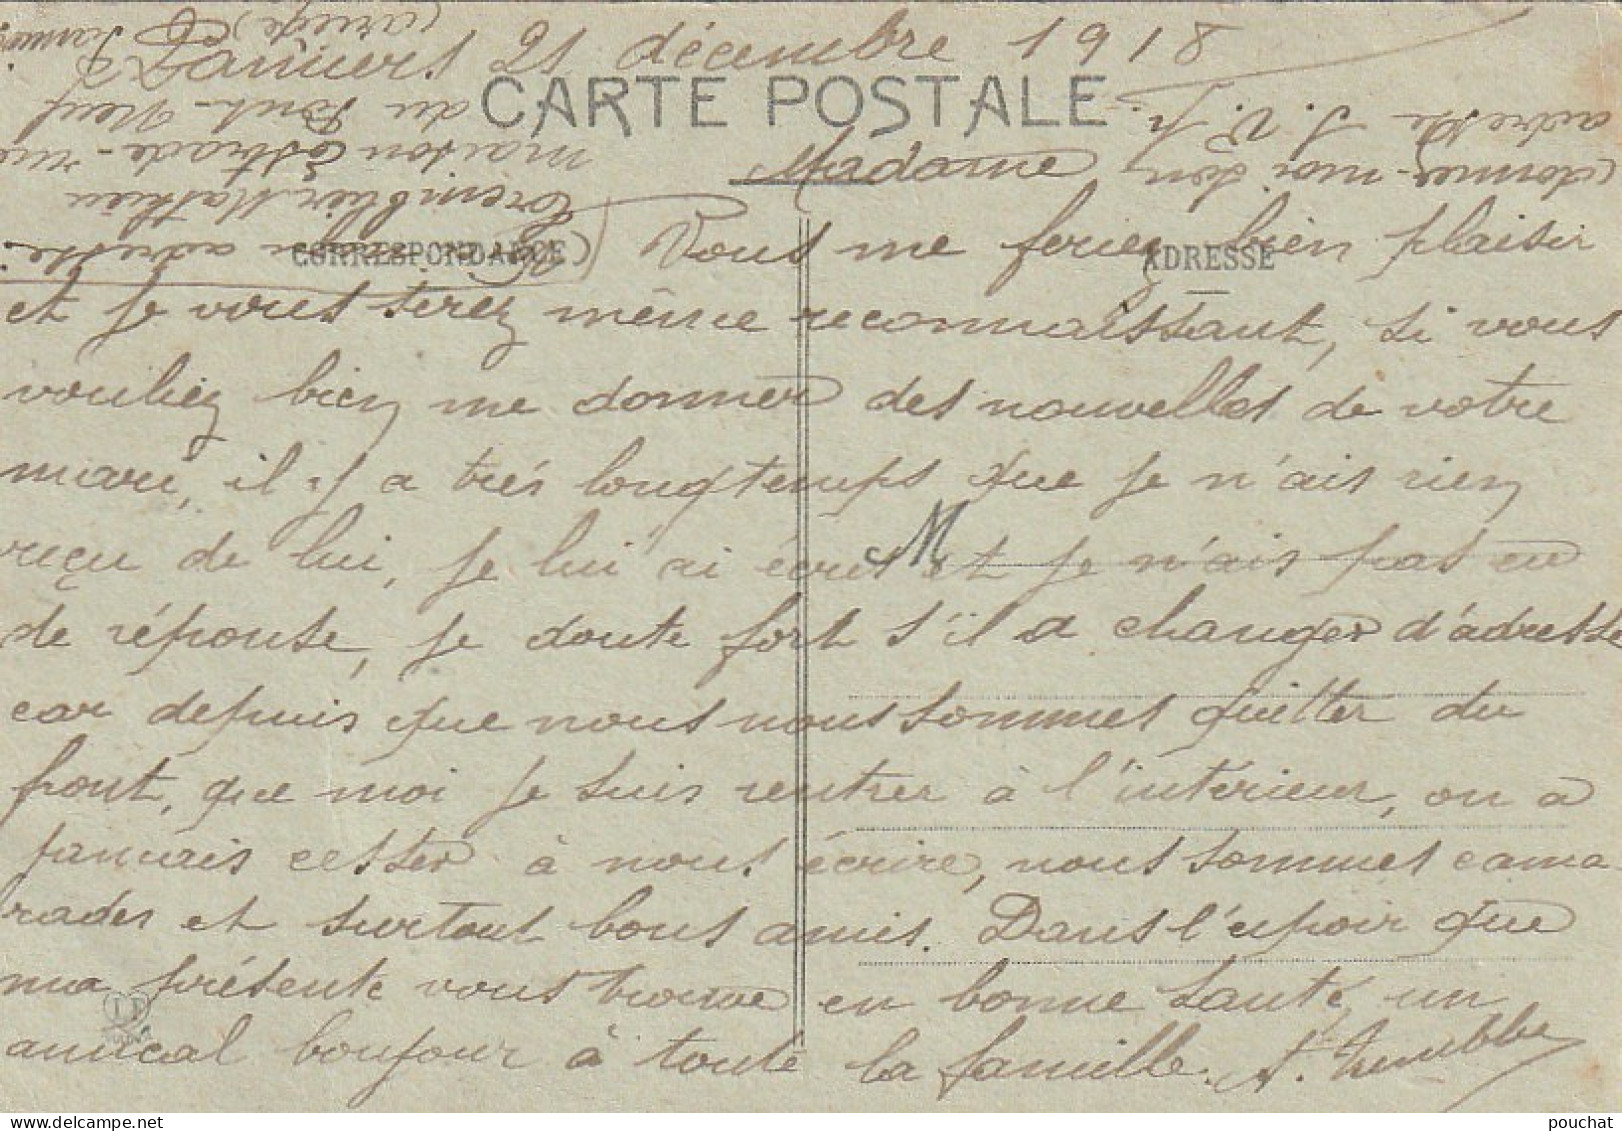 Pamiers 21 décembre 1918
(ariège)
CARTE POSTALE
Madame
CORRESPONDANCE
ADRESSE
Vous me feriez bien plaisir
et je vous serez même reconnaissant, si vous
vouliez bien me donner des nouvelles de votre
mari, il y a très longtemps que je n'ais rien
reçu de lui, je lui ai écris et je n'ais pas eu
de réponse, je doute fort s'il a changer d'adresse
car depuis que nous nous sommes quitter du
front, que moi je suis rentrer à l'intérieur, on a
jamais cesser à nous écrire, nous sommes cama
rades et surtout bons amis. Dans l'espoir que
ma présente vous trouve en bonne santé, un
amical bonjour à toute la famille. A.
(donnez-moi son
adresse S. V. P.
adresse:
Mathieu
maison Estrade - rue
du Pont-Neuf
Pamiers
M
pouchat www.delcampe.net